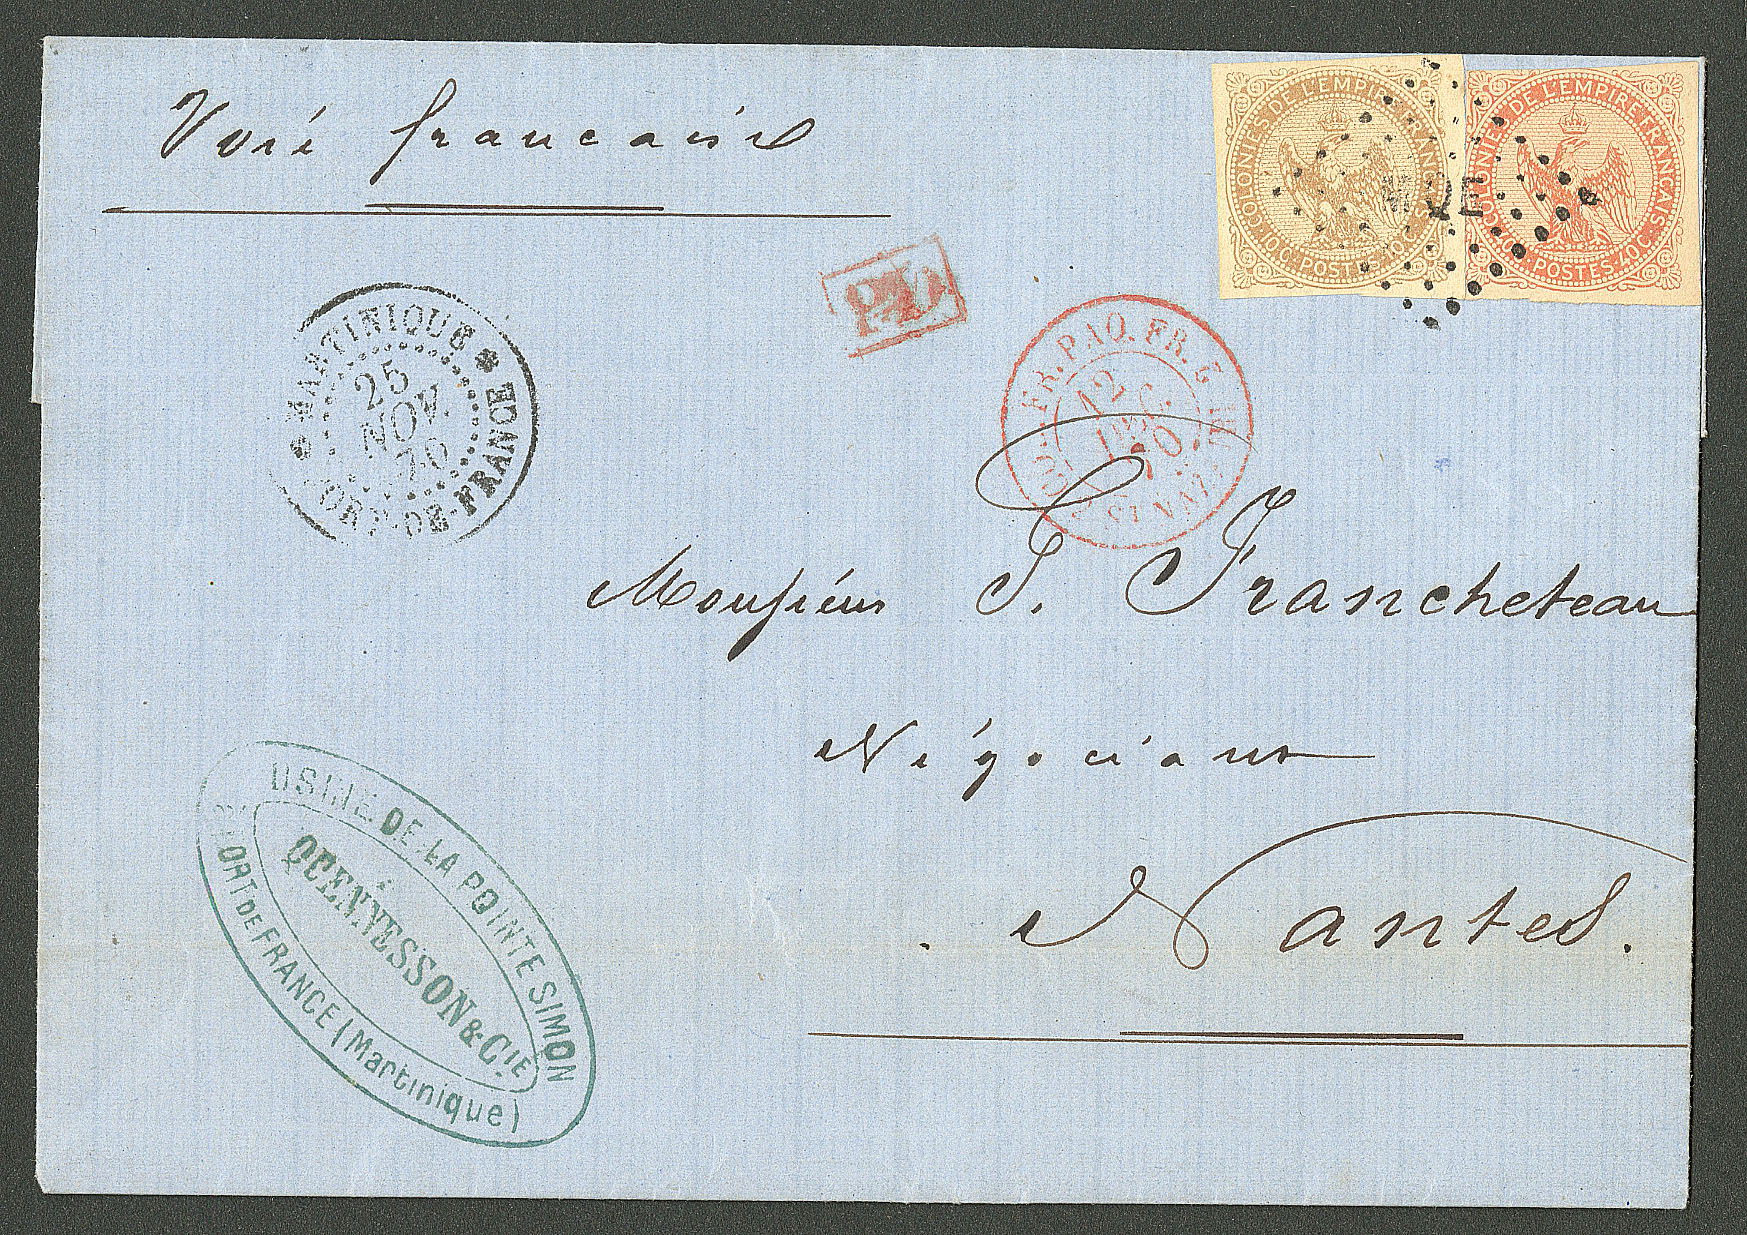 Voie francaise
COLONIES DE L'EMPIRE FRANÇAIS
10C. POSTES. 10C.
COLONIES DE L'EMPIRE FRANÇAIS
40C. POSTES. 40C.
MQE
P.D.
MARTINIQUE
25
NOV.
70
FORT-DE-FRANCE
COL. FR. PAQ. FR.
12
DEC.
70
ST NAZ
Monsieur
Francheteau
Négociant
Nantes.
USINE DE LA POINTE SIMON
QUENNESSON & CIE
FORT DE FRANCE (Martinique)